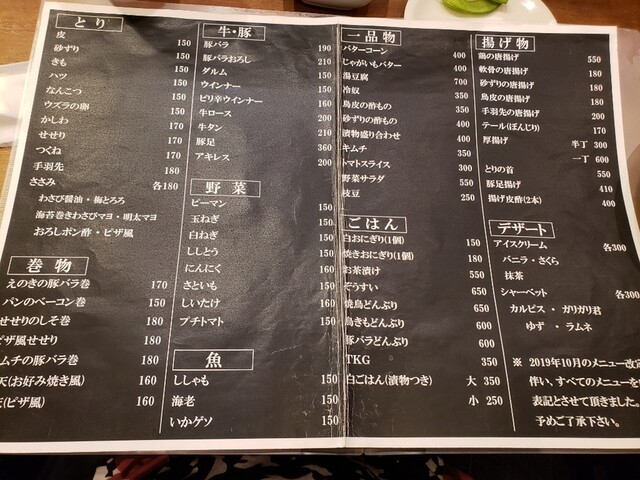 とり
皮 150
砂ずり 150
きも 150
ハツ 150
なんこつ 150
ウズラの卵 150
かしわ 170
せせり 170
つくね 170
手羽先 180
ささみ 各180
わさび醤油・梅とろろ
海苔巻きわさびマヨ・明太マヨ
おろしポン酢・ピザ風
巻物
えのきの豚バラ巻 170
パンのベーコン巻 150
せせりのしそ巻 180
ピザ風せせり 180
ムチの豚バラ巻 180
天(お好み焼き風) 160
(ピザ風) 160
牛・豚
豚バラ 190
豚バラおろし 210
ダルム 150
ウインナー 150
ピリ辛ウインナー 160
牛ロース 210
牛タン 210
豚足 360
アキレス 200
野菜
ピーマン 150
玉ねぎ 150
白ねぎ 150
ししとう 150
にんにく 160
さといも 150
しいたけ 160
プチトマト 150
魚
ししゃも 150
海老 150
いかゲソ 150
一品物
バターコーン 400
じゃがいもバター 400
湯豆腐 700
冷奴 350
鳥皮の酢もの 350
砂ずりの酢もの 350
漬物盛り合わせ 400
キムチ 350
トマトスライス 300
野菜サラダ 550
枝豆 250
ごはん
白おにぎり(1個) 150
焼きおにぎり(1個) 180
お茶漬け 550
ぞうすい 650
焼鳥どんぶり 650
鳥きもどんぶり 600
豚バラどんぶり 600
TKG 350
白ごはん(漬物つき) 大 350
小 250
揚げ物
鶏の唐揚げ 550
軟骨の唐揚げ 180
砂ずりの唐揚げ 180
鳥皮の唐揚げ 200
手羽先の唐揚げ 180
テール(ぼんじり) 170
厚揚げ 半丁 300
一丁 600
とりの首 550
豚足揚げ 410
揚げ皮酢(2本) 400
デザート
アイスクリーム 各300
バニラ・さくら
抹茶
シャーベット 各300
カルピス・ガリガリ君
ゆず・ラムネ
※ 2019年10月のメニュー改定
伴い、すべてのメニューを
表記とさせて頂きました。
予めご了承下さい。